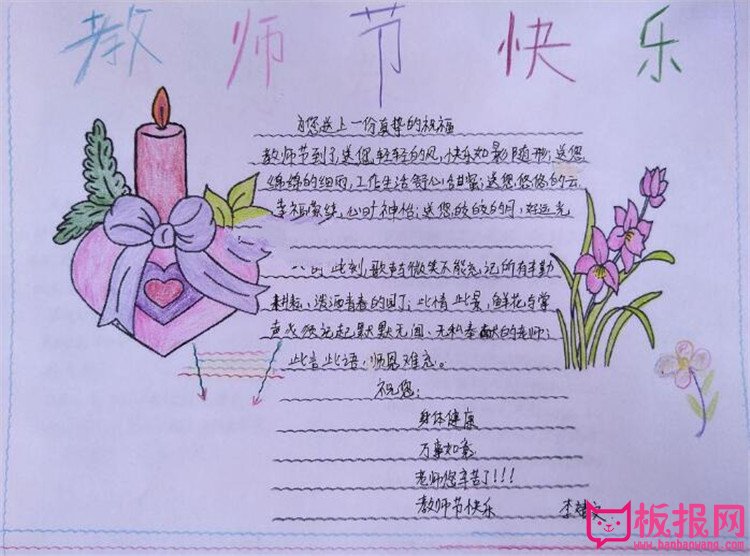 教师节快乐
为您送上一份真挚的祝福
教师节到了,送您轻轻的风,快乐如影随形;送您
绵绵的细雨,工作生活舒心甜蜜;送您悠悠的云
幸福萦绕,心旷神怡;送您皎皎的月,好运无
此刻,歌声与微笑不能忘记所有辛勤
耕耘、泼洒青春的园丁;此情此景,鲜花与掌
声或须记起默默无闻、无私奉献的老师;
此言此语,师恩难忘。
祝您:
身体健康
万事如意
老师您辛苦了!!!
教师节快乐 李
板报网
www.banbaowang.com